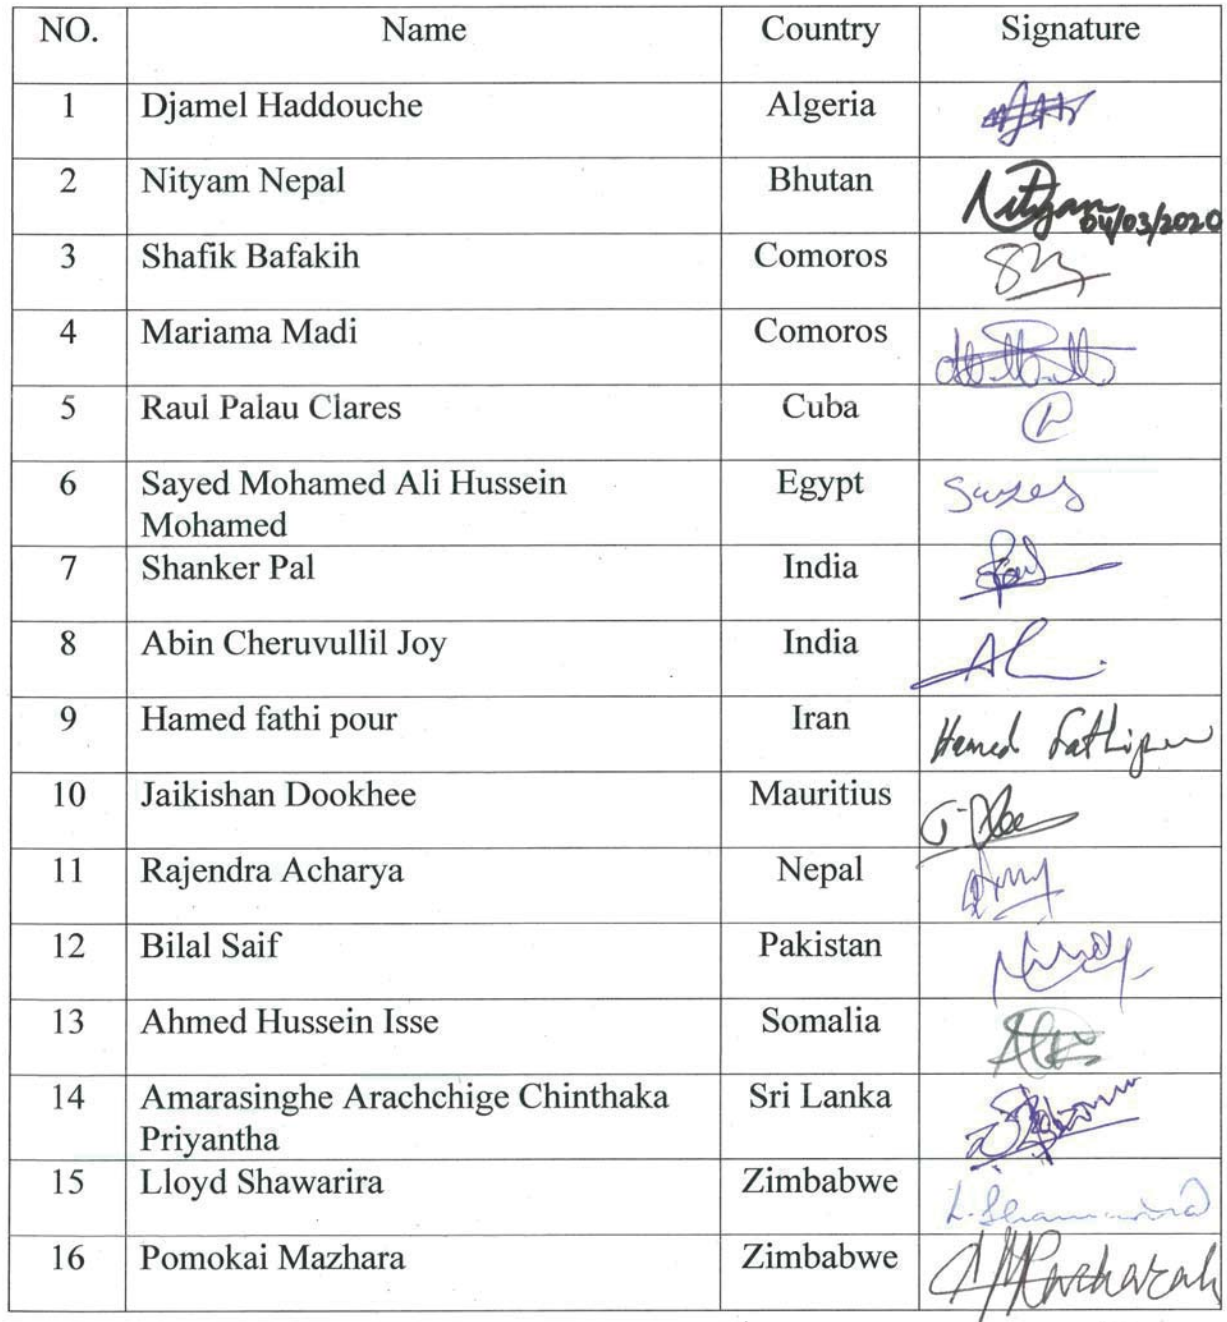 NO. Name Country Signature
1 Djamel Haddouche Algeria
2 Nityam Nepal Bhutan Nityam
04/03/2020
3 Shafik Bafakih Comoros
4 Mariama Madi Comoros
5 Raul Palau Clares Cuba
6 Sayed Mohamed Ali Hussein Egypt
Mohamed
7 Shanker Pal India
8 Abin Cheruvullil Joy India
9 Hamed fathi pour Iran Hamed Fathipour
10 Jaikishan Dookhee Mauritius
11 Rajendra Acharya Nepal
12 Bilal Saif Pakistan
13 Ahmed Hussein Isse Somalia
14 Amarasinghe Arachchige Chinthaka Sri Lanka
Priyantha
15 Lloyd Shawarira Zimbabwe
16 Pomokai Mazhara Zimbabwe